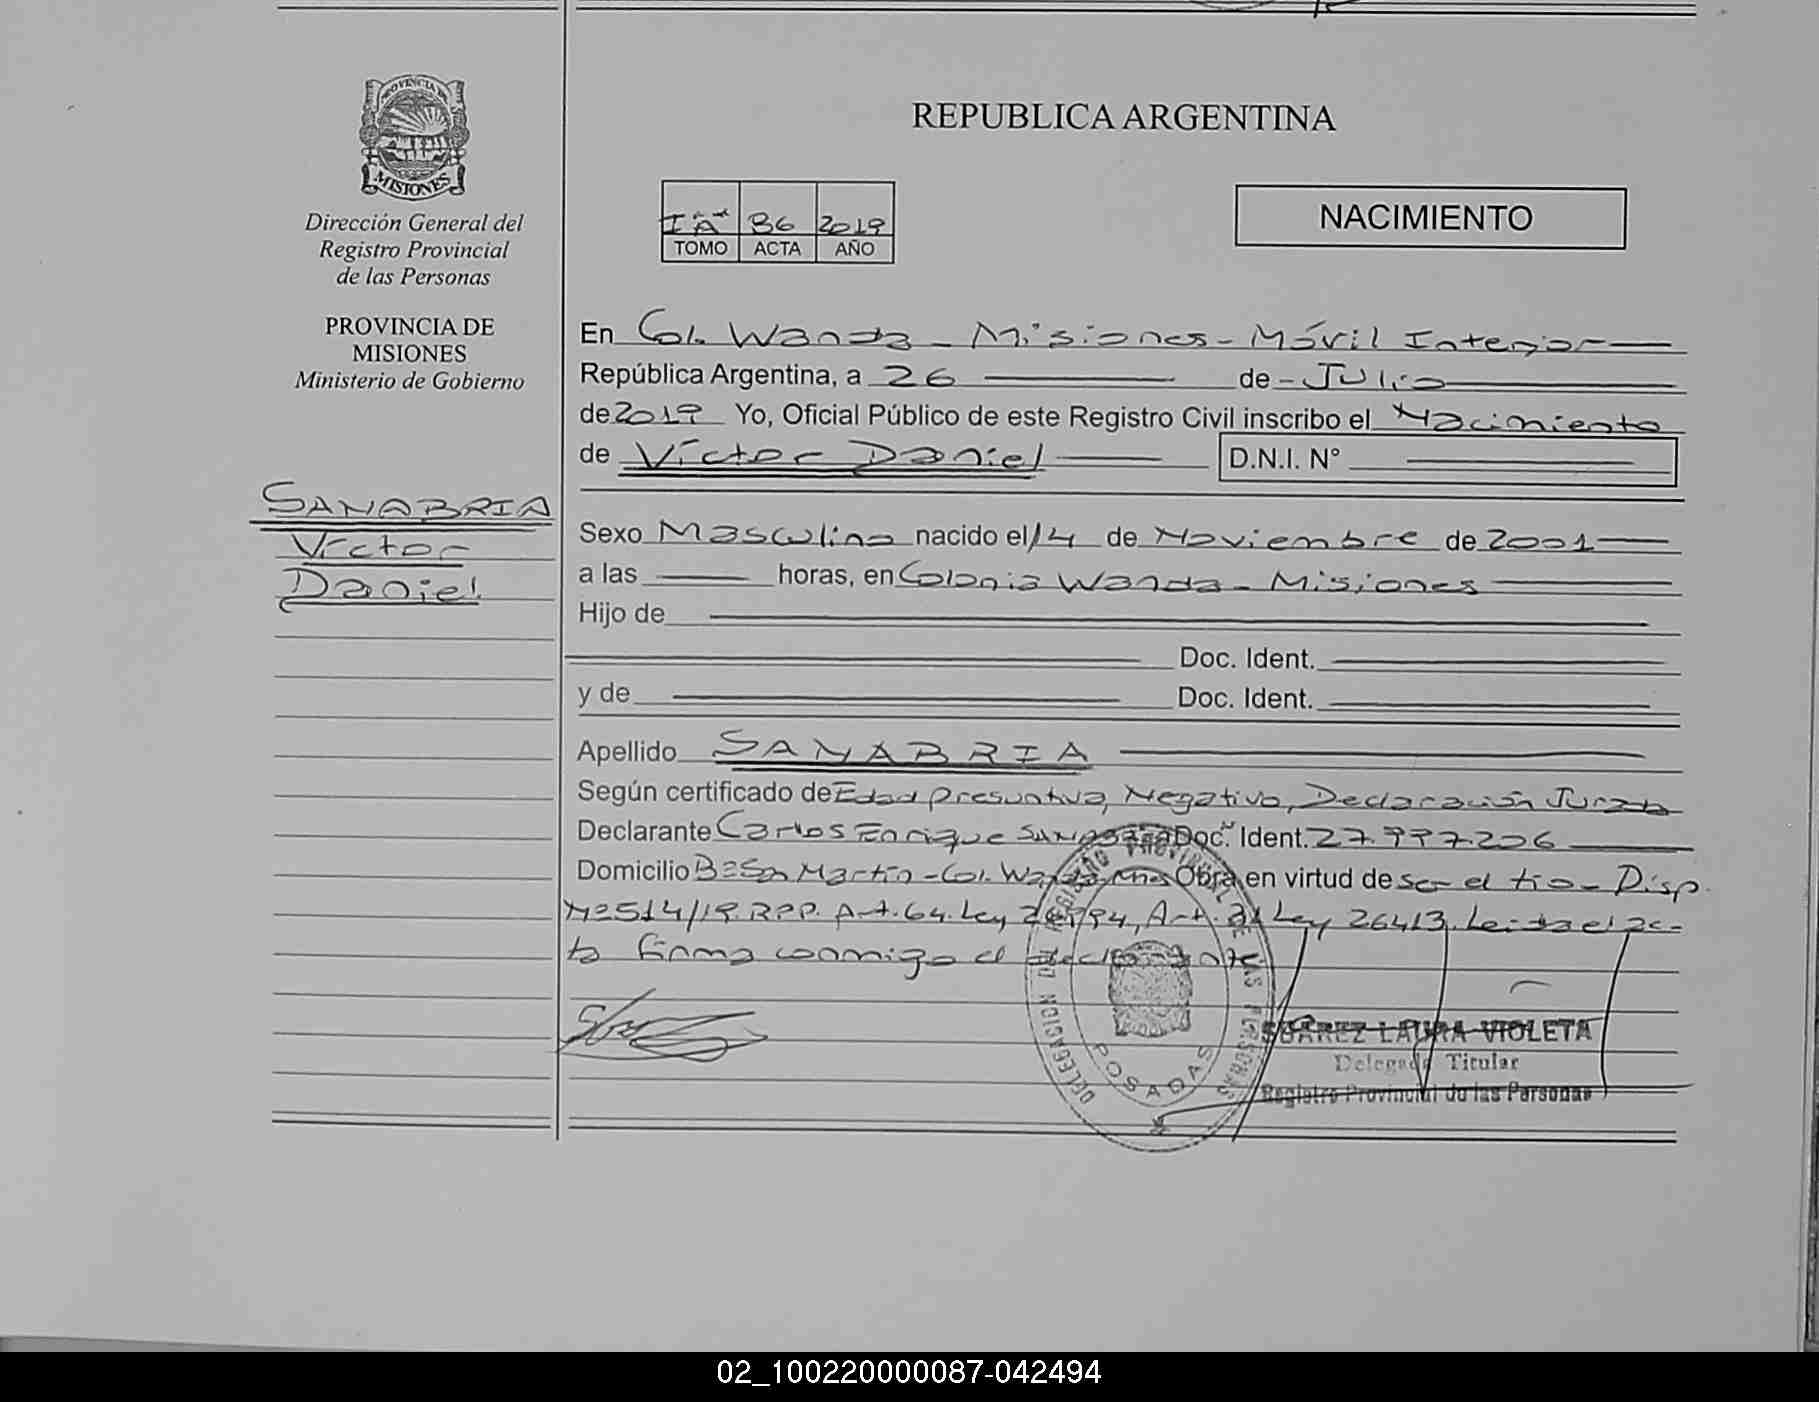 PROVINCIA DE
MISIONES
Dirección General del
Registro Provincial
de las Personas
PROVINCIA DE
MISIONES
Ministerio de Gobierno
SANABRIA
Víctor
Daniel
REPUBLICA ARGENTINA
36 2019
TOMO ACTA AÑO
NACIMIENTO
En Col. Wanda - Misiones - Móvil Interior
República Argentina, a 26 de - Julio
de 2019 Yo, Oficial Público de este Registro Civil inscribo el Nacimiento
de Víctor Daniel D.N.I. N°
Sexo Masculino nacido el 14 de Noviembre de 2001
a las horas, en Colonia Wanda - Misiones
Hijo de
Doc. Ident.
y de Doc. Ident.
Apellido SANABRIA
Según certificado de Edad presuntiva, Negativo, Declaración Jurada
Declarante Carlos Enrique Sanabria Doc. Ident. 27.997.206
Domicilio Bº San Martín - Col. Wanda Mnes Obra en virtud de ser el tio - Disp
Nº 514/19. RPP. Art. 64. Ley 26994, Art. Ley 26413. Leida el ac-
ta firma conmigo el declarante
DELEGACION DEL REGISTRO PROVINCIAL DE LAS PERSONAS
POSADAS
SUAREZ LAURA VIOLETA
Delegada Titular
Registro Provincial de las Personas
02_100220000087-042494